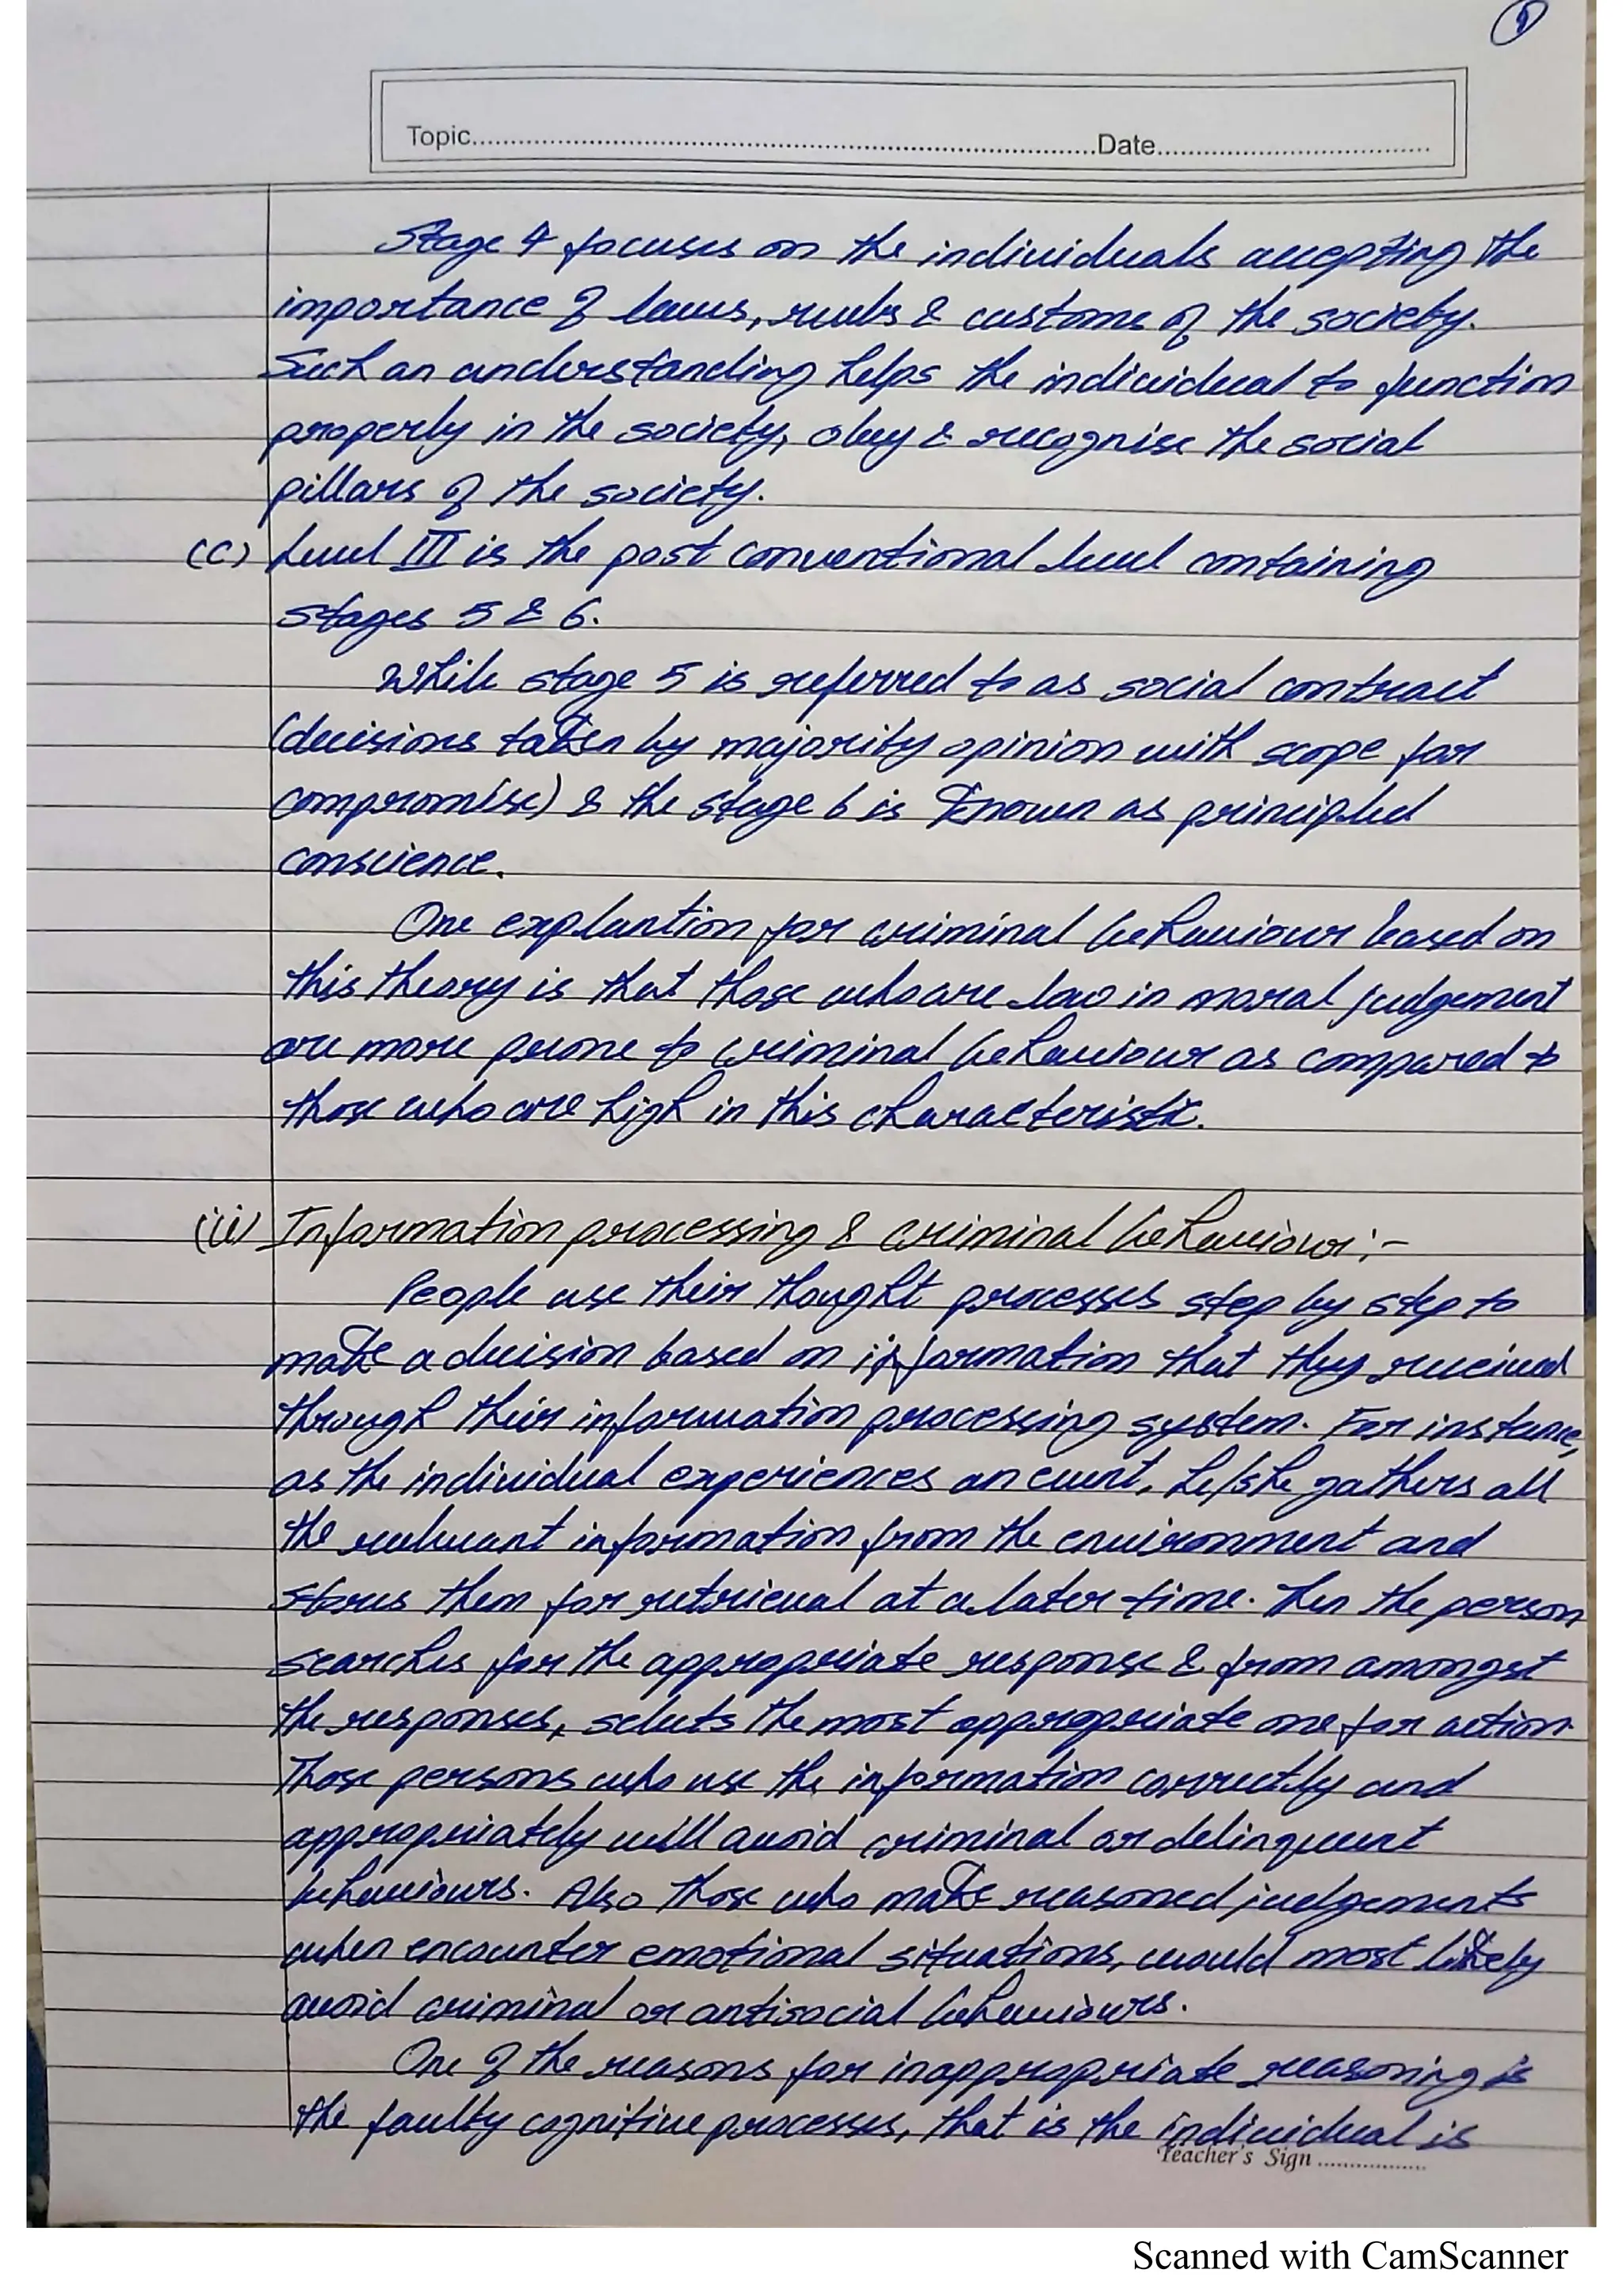 Topic....................Date....................
Stage 4 focuses on the individuals accepting the
importance of laws, rules & customs of the society.
Such an understanding helps the individual to function
properly in the society, obey & recognise the social
pillars of the society.
(c) Level III is the post conventional level containing
stages 5 & 6.
While stage 5 is referred to as social contract
(decisions taken by majority opinion with scope for
compromise) & the stage 6 is known as principled
conscience.
One explantion for criminal behaviour based on
this theory is that those who are low in moral judgement
are more prone to criminal behaviour as compared to
those who are high in this characteristic.
Information processing & criminal behaviour:-
People use their thought processes step by step to
make a decision based on information that they received
through their information processing system. For instance,
as the individual experiences an event, he/she gathers all
the relevant information from the environment and
stores them for retrieval at a later time. Then the person
searches for the appropriate response & from amongst
the responses, selects the most appropriate one for action.
Those persons who use the information correctly and
appropriately will avoid criminal or delinquent
behaviours. Also those who make reasoned judgements
when encounter emotional situations, would most likely
avoid criminal or antisocial behaviours.
One of the reasons for inappropriate reasoning is
the faulty cognitive processes, that is the individual is
Teacher's Sign ..................
Scanned with CamScanner